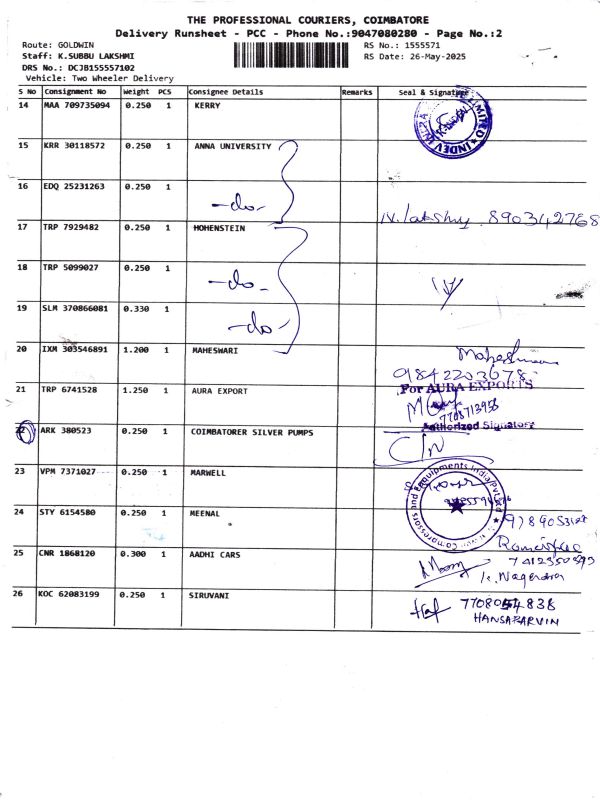 THE PROFESSIONAL COURIERS, COIMBATORE
Delivery Runsheet - PCC - Phone No.:9047080280 - Page No.:2
Route: GOLDWIN RS No.: 1555571
Staff: K.SUBBU LAKSHMI RS Date: 26-May-2025
DRS No.: DCJB155557102
Vehicle: Two Wheeler Delivery
S No Consignment No Weight PCS Consignee Details Remarks Seal & Signature
14 MAA 709735094 0.250 1 KERRY
15 KRR 30118572 0.250 1 ANNA UNIVERSITY
16 EDQ 25231263 0.250 1 -do-
N. lakshmy 890342768
17 TRP 7929482 0.250 1 HOHENSTEIN
18 TRP 5099027 0.250 1 -do-
19 SLM 370866081 0.330 1 -do-
20 IXM 303546891 1.200 1 MAHESWARI
9842203678
21 TRP 6741528 1.250 1 AURA EXPORT
For AURA EXPORTS
7708713958
Authorized Signatory
22 ARK 380523 0.250 1 COIMBATORER SILVER PUMPS
23 VPM 7371027 0.250 1 MARWELL
24 STY 6154580 0.250 1 MEENAL
25 CNR 1868120 0.300 1 AADHI CARS
26 KOC 62083199 0.250 1 SIRUVANI
HANSAPARVIN